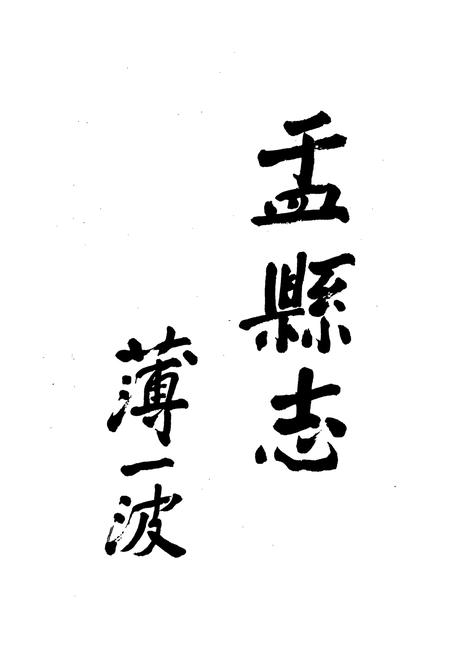 盂縣志
薄一波